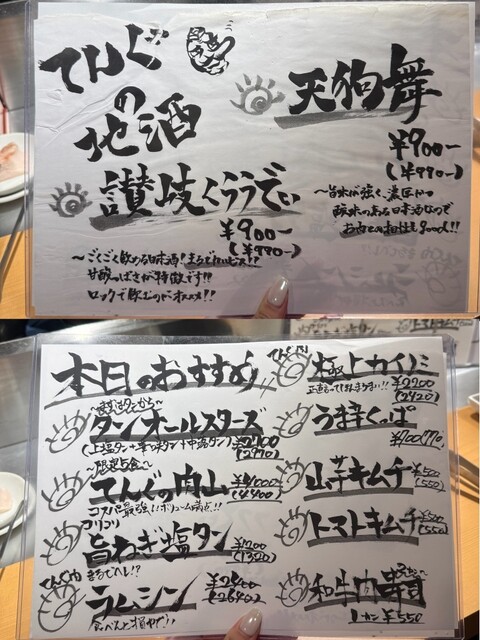 てんぐ
の
地酒
天狗舞
¥900-
(¥990-)
〜旨味が強く、濃厚かつ
酸味のある日本酒なので
お肉との相性もgood!!
讃岐くらうでぃ
¥900-
(¥990-)
〜ごくごく飲める日本酒!まるでカルピス!?
甘酸っぱさが特徴です!!
ロックで飲むのがオススメ!!
本日のおすすめ
〜まずはタンから〜
タンオールスターズ
(上塩タン+
タン+中落タン)
¥2700
(2970)
〜限定5食〜
てんぐの肉山
¥4000
(4400)
コスパ最強!!ボリューム満点!!
コリコリ
旨ねぎ塩タン
¥1200
(1320)
まるでハレ!?
ラムシン
¥2400
(2640)
食べんと損やで!!
極上カイノミ
¥2200
(2420)
うま辛くっぱ
¥700(770)
山芋キムチ
¥500
(550)
トマトキムチ
¥500
(550)
和牛肉寿司
1カン ¥550